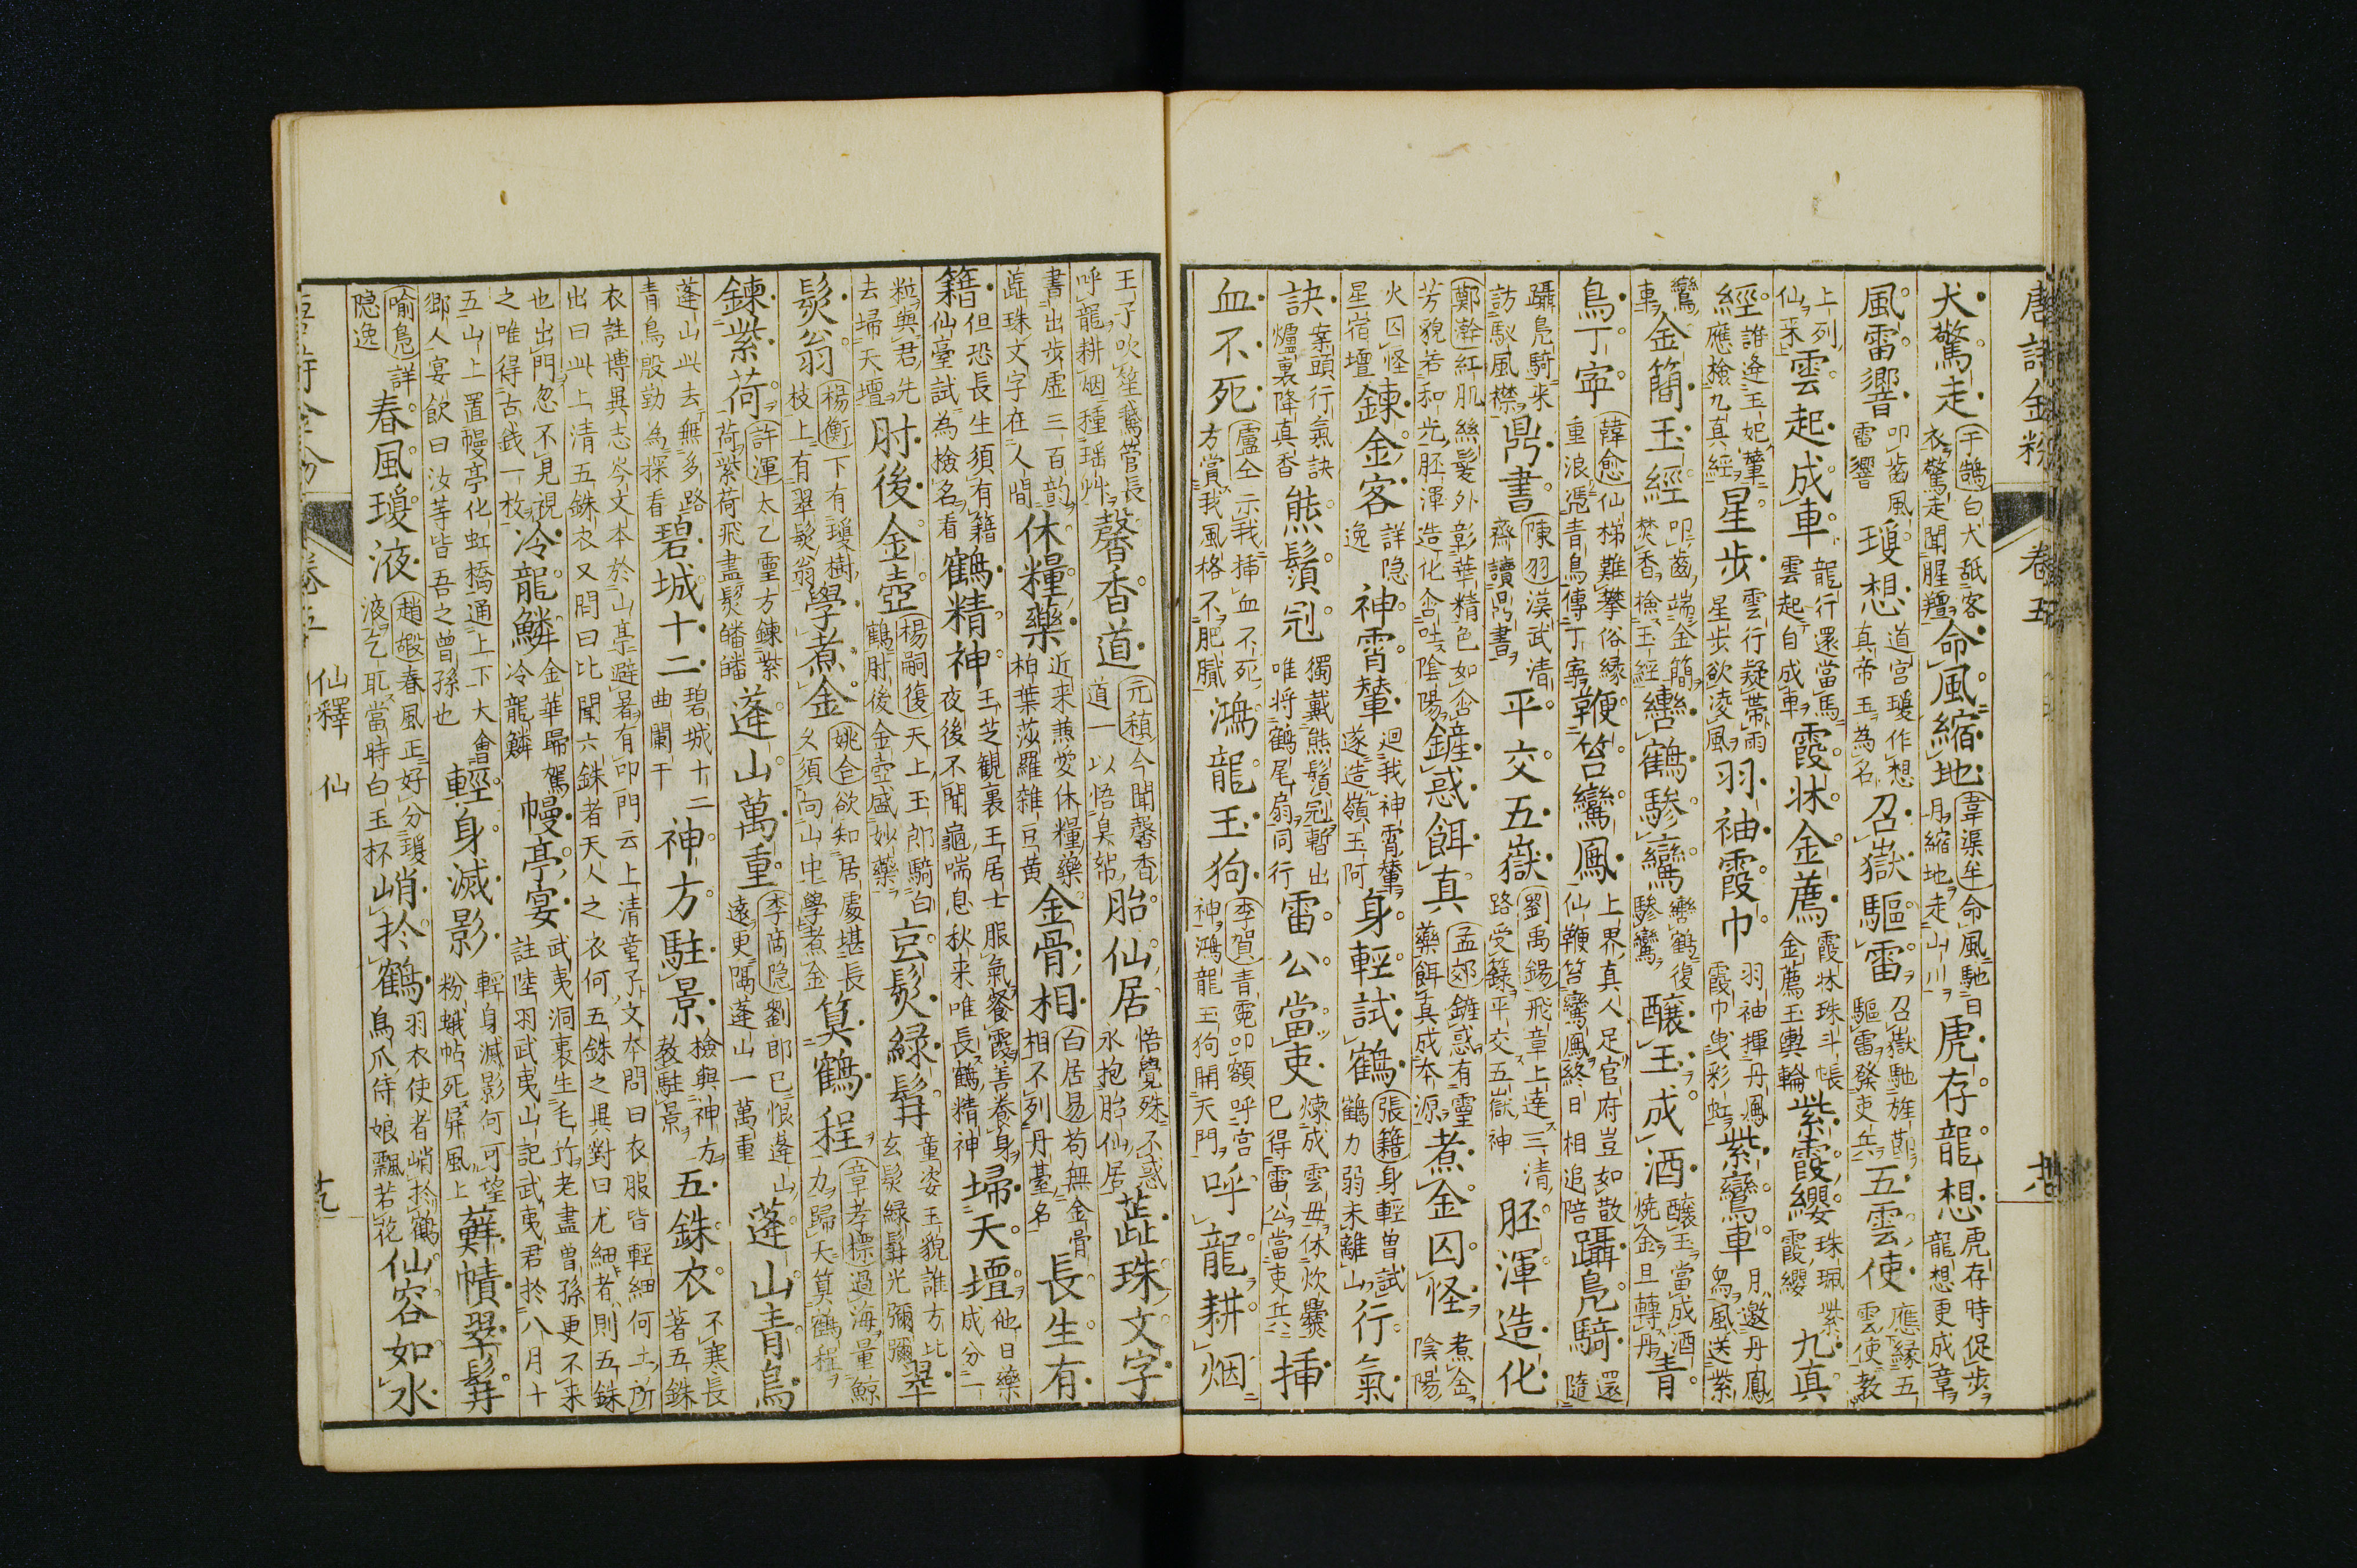 唐詩金粉 卷五
犬驚走 于鵠白犬舐客衣驚走聞腥羶 命風縮地 韋渠牟命風馳日月縮地走山川 虎存龍想 虎存時促步龍想更成章
風雷響 叩齒風雷響 瓊想 道宮瓊作想真帝玉為名 召嶽驅雷 召嶽馳旌節驅雷發吏兵 五雲使 應縁五雲使教
上列仙来 雲起成車 龍行還當馬雲起自成車 霞牀金薦 霞牀珠斗帳金薦玉輿輪 紫霞纓 珠珮紫霞纓 九真
經 誰逢玉妃輦應檢九真經 星步 雲行疑帶雨星步欲凌風 羽袖霞巾 羽袖揮丹鳳霞巾曳彩虹 紫鸞車 月邀丹鳳舄風送紫
鸞車 金簡玉經 叩齒端金簡焚香檢玉經 轡鶴驂鸞 轡鶴復驂鸞 醸玉成酒 醸玉當成酒燒金且轉丹 青
鳥丁寧 韓愈仙梯難攀俗縁重浪憑青鳥傳丁寧 鞭笞鸞鳳 上界真人足官府豈如散仙鞭笞鸞鳳終日相追陪 躡鳧騎 還隨
躡鳧騎来訪馭風襟 鼎書 陳羽漢武清齋讀鼎書 平交五嶽 劉禹錫飛章上達三清路受籙平交五嶽神 胚渾造化
鄭澣紅肌絲髪外彰華精色如舍芳貌若和光胚渾造化含吐陰陽 鏟惑餌真 孟郊鏟惑有靈藥餌真成本源 煮金囚怪 煮金陰陽
火囚怪星宿壇 鍊金客 詳隠逸 神霄輦 迴我神霄輦遂造嶺玉阿 身輕試鶴 張籍身輕曽試鶴力弱未離山 行氣
訣 案頭行氣訣爐裏降真香 熊鬚冠 獨戴熊鬚冠暫出唯将鶴尾扇同行 雷公當吏 煉成雲母休炊爨已得雷公當吏兵 挿
血不死 盧仝示我挿血不死方賞我風格不肥膩 鴻龍玉狗 李賀青霓叩額呼宮神鴻龍玉狗開天門 呼龍耕烟
王子吹笙鵞管長呼龍耕烟種瑶艸 馨香道 元稹今聞馨香道一以悟臭帤 胎仙居 悟覺殊不惑永抱胎仙居 蘂珠文字
書出步虛三百韵蘂珠文字在人間 休糧藥 近来兼愛休糧藥柏葉莎羅雜豆黄 金骨相 白居易苟無金骨相不列丹臺名 長生有
籍 但恐長生須有籍仙臺試為檢名看 鶴精神 玉芝観裏王居士服氣餐霞善養身夜後不聞龜喘息秋来唯長鶴精神 埽天壇 他日藥成分一
粒與君先去埽天壇 肘後金壺 楊嗣復天上玉郎騎白鶴肘後金壺盛妙藥 玄髪緑髯 童姿玉貌誰方比玄髪緑髯光彌彌 翠
髪翁 楊衡下有瓊樹枝上有翠髪翁 學煮金 姚合欲知居處堪長久須向山中學煮金 算鶴程 章孝標過海量鯨力歸天算鶴程
鍊紫荷 許渾太乙靈方鍊紫荷紫荷飛盡髪皤皤 蓬山萬重 李商隠劉郎已恨蓬山遠更隔蓬山一萬重 蓬山青鳥
蓬山此去無多路青鳥殷勤為探看 碧城十二 碧城十二曲闌干 神方駐景 檢與神方教駐景 五銖衣 不寒長著五銖
衣註博異志岑文本於山亭避暑有叩門云上清童子文本問曰衣服皆輕細何土所
出曰此上清五銖衣又問曰比聞六銖者天人之衣何五銖之異對曰尤細者則五銖
也出門忽不見視之唯得古錢一枚 冷龍鱗 金華歸駕冷龍鱗 幔亭宴 武夷洞裏生毛竹老盡曽孫更不来註陸羽武夷山記武夷君於八月十
五山上置幔亭化虹橋通上下大會郷人宴飲曰汝等皆吾之曽孫也 輕身滅影 輕身滅影何可望粉蛾帖死屏風上 蘚幘翠髯
喻凫詳隠逸 春風瓊液 趙嘏春風正好分瓊液乞取當時白玉杯 峭拎鶴 羽衣使者峭拎鶴鳥爪侍娘飄若花 仙容如水
仙釋 仙